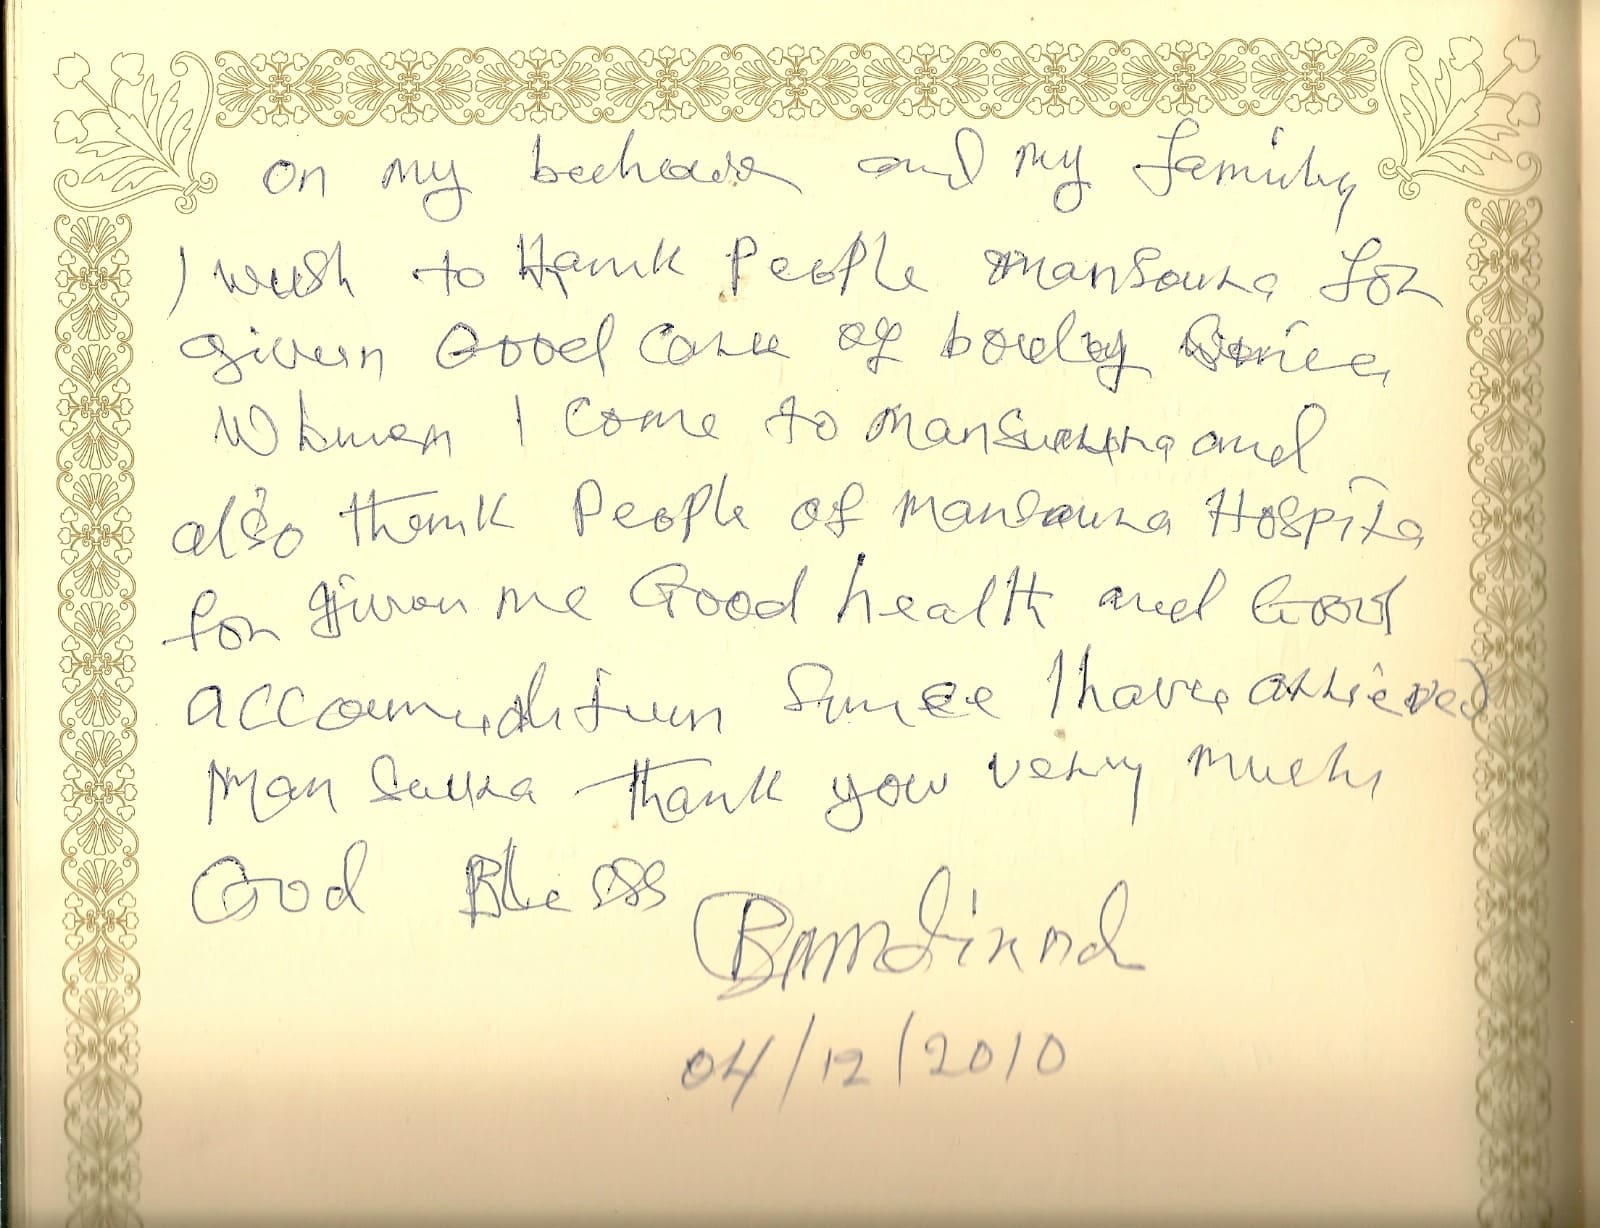 on my beehave and my family
I wish to thank People mansoura for
given Good Care of bodey Since
When I come to mansoura and
also thank People of mansoura Hospita
for given me Good health and Good
accoumudition Since I have arrieved
Mansoura thank you very much
God Bless
04/12/2010